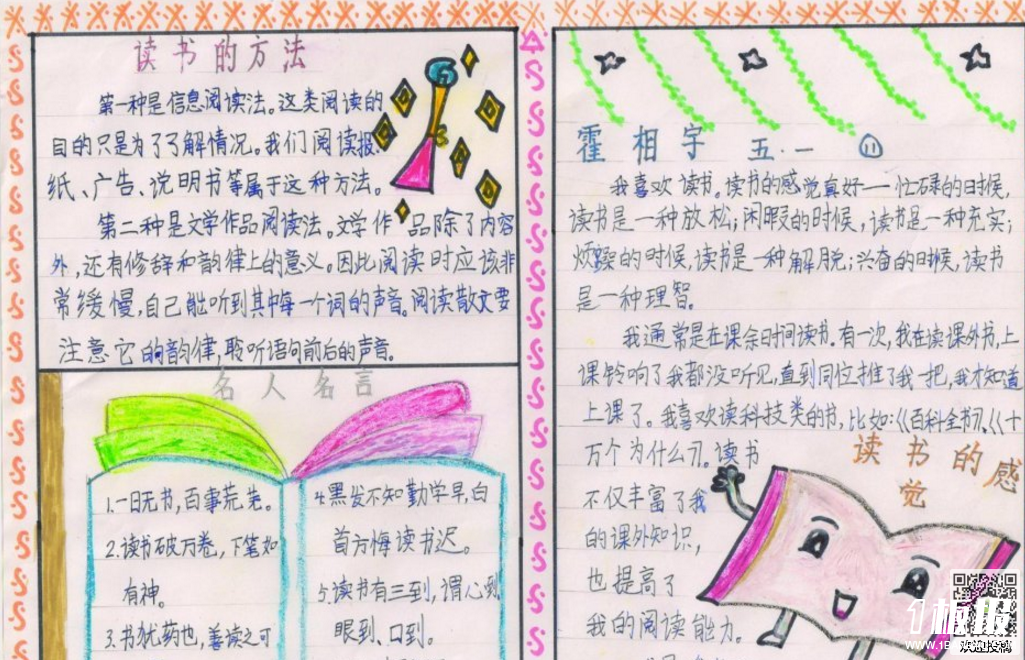 读书的方法
第一种是信息阅读法。这类阅读的
目的只是为了了解情况。我们阅读报
纸、广告、说明书等属于这种方法。
第二种是文学作品阅读法。文学作品除了内容
外,还有修辞和韵律上的意义。因此阅读时应该非
常缓慢,自己能听到其中每一个词的声音。阅读散文要
注意它的韵律,聆听语句前后的声音。
名人名言
1.一日无书,百事荒芜。
2.读书破万卷,下笔如
有神。
3.书犹药也,善读之可
4.黑发不知勤学早,白
首方悔读书迟。
5.读书有三到,谓心到
眼到、口到。
霍相宇 五.一 11
我喜欢读书。读书的感觉真好——忙碌的时候,
读书是一种放松;闲暇的时候,读书是一种充实;
烦躁的时候,读书是一种解脱;兴奋的时候,读书
是一种理智。
我通常是在课余时间读书。有一次,我在读课外书,上
课铃响了我都没听见,直到同位推了我一把,我才知道
上课了。我喜欢读科技类的书,比如:《百科全书》、《十
万个为什么》。读书
不仅丰富了我
的课外知识,
也提高了
我的阅读能力。
读书的感
觉
板报
欢迎投稿